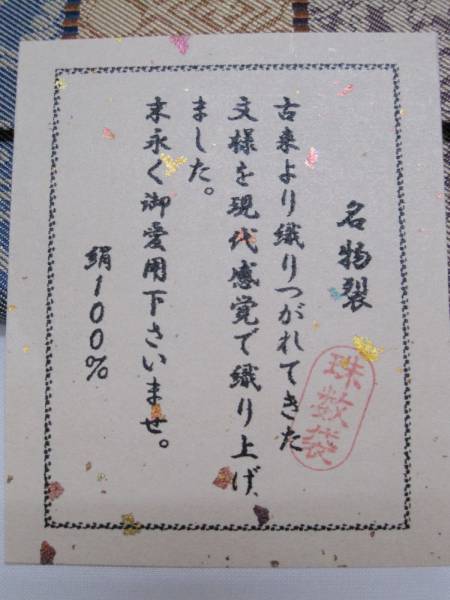 名物裂
珠数袋
古来より織りつがれてきた
文様を現代感覚で織り上げ
ました。
末永く御愛用下さいませ。
絹100%